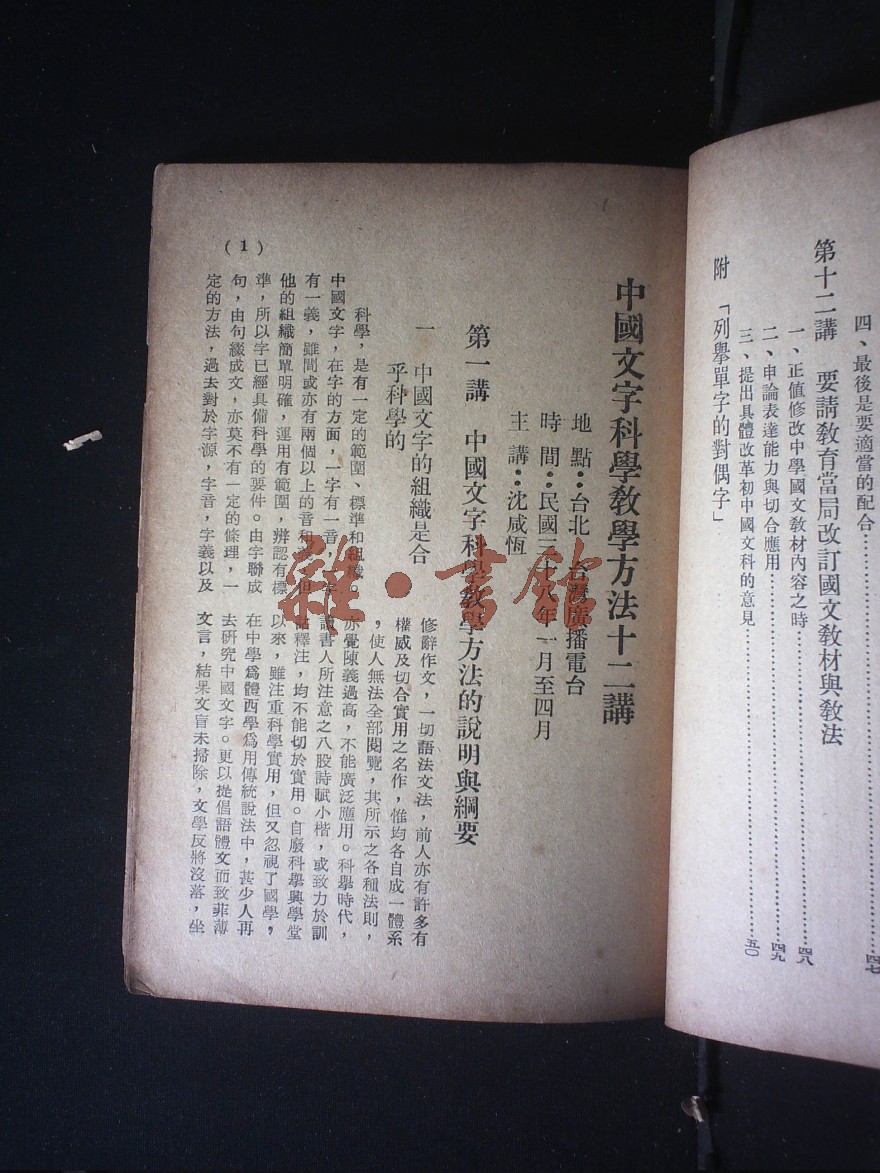 四、最後是要適當的配合…………四七
第十二講　要請教育當局改訂國文教材與教法
一、正值修改中學國文教材內容之時…………四八
二、申論表達能力與切合應用…………四九
三、提出具體改革初中國文科的意見…………五〇
附　「列舉單字的對偶字」
中國文字科學教學方法十二講
地　點：台北　台灣廣播電台
時　間：民國三十八年一月至四月
主　講：沈咸恆
第一講　中國文字科學教學方法的說明與綱要
一　中國文字的組織是合
乎科學的
科學，是有一定的範圍、標準和組織。
中國文字，在字的方面，一字有一音，一字
有一義，雖間或亦有兩個以上的音和義，但
他的組織簡單明確，運用有範圍，辨認有標
準，所以字已經具備科學的要件。由字聯成
句，由句綴成文，亦莫不有一定的條理，一
定的方法，過去對於字源，字音，字義以及
修辭作文，一切語法文法，前人亦有許多有
權威及切合實用之名作，惟均各自成一體系
，使人無法全部閱覽，其所示之各種法則，
亦覺陳義過高，不能廣泛應用。科舉時代，
讀書人所注意之八股詩賦小楷，或致力於訓
詁釋注，均不能切於實用。自廢科舉興學堂
以來，雖注重科學實用，但又忽視了國學，
在中學爲體西學爲用傳統說法中，甚少人再
去研究中國文字。更以提倡語體文而致菲薄
文言，結果文盲未掃除，文學反將沒落，坐
(1)
雜·書館